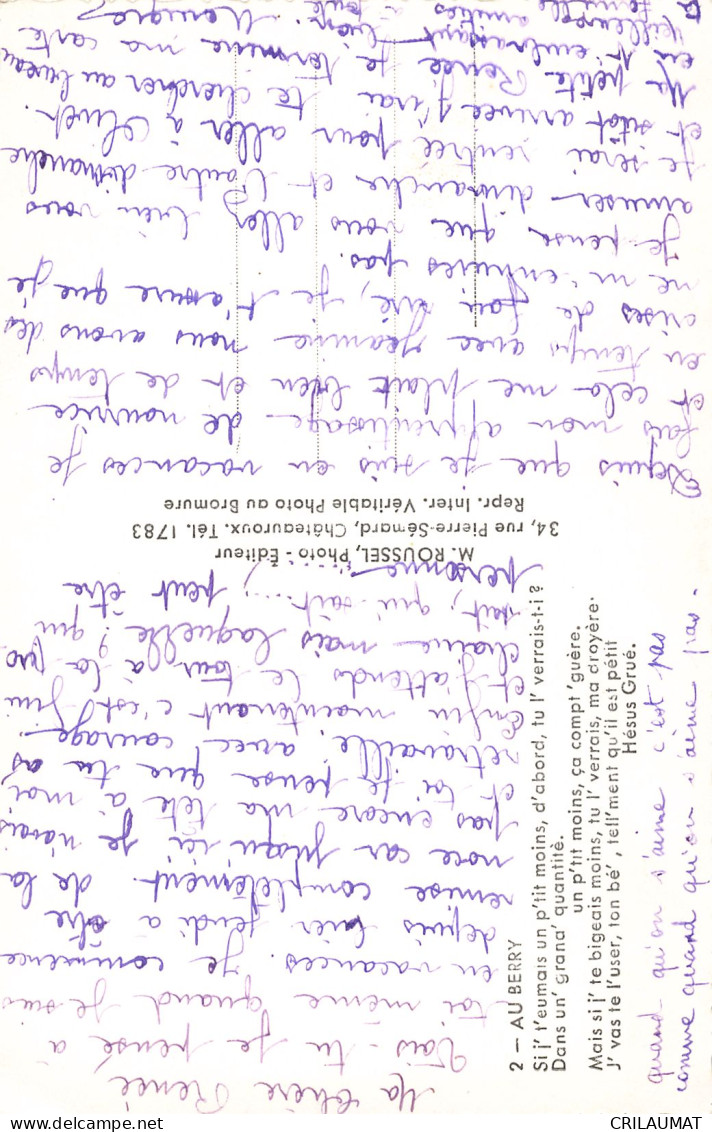 Ma chère Renée
Vois-tu je pense à
toi même quand je suis
en vacances. Je commence
depuis hier jeudi a être
remise complètement de la
noce car jusqu'ici je n'avais
pas encore ma tête à moi
et toi je pense que tu as
retravaillé avec courage.
Enfin maintenant c'est fini
et j'attends le tour à la pro
chaine mais laquelle ? qui
sait, qui sait...., peut être
personne
2 — AU BERRY
Si j' t'eumais un p'tit moins, d'abord, tu l' verrais-t-i ?
Dans un' grana' quantité.
un p'tit moins, ça compt 'guère.
Mais si j' te bigeais moins, tu l' verrais, ma droyère.
J' vas te l'user, ton bé', tell'ment qu'il est pétit
Hésus Grué.
quand qu'on s'aime c'est pas
comme quand qu'on s'aime pas.
M. ROUSSEL, Photo - Éditeur
34, rue Pierre-Sémard, Châteauroux. Tél. 1783
Repr. Inter. Véritable Photo au Bromure
Depuis que je suis en vacances je
fais mon apprentissage de nourrice
et cela me plait bien et de temps
en temps avec Jeanine nous avons des
crises de fou rire, je t'assure que je
ne m'ennuies pas.
Je pense que vous allez bien vous
amuser dimanche et l'autre dimanche
je serai rentrée pour aller à Olivet.
et sitôt arrivée j'irai te chercher au bureau
Ma petite Renée je termine ma carte
en t'embrassant bien
Meilleures amitiés à toute
ta famille
Monique
CRILAUMAT